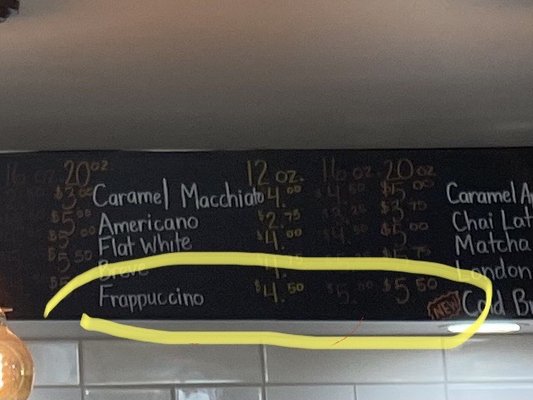 16 oz. 20 oz 12 oz. 16 oz. 20 oz
$3.00 Caramel Macchiato $4.00 $4.50 $5.00 Caramel A
$5.00 Americano $2.75 $3.25 $3.75 Chai Lat
$5.00 Flat White $4.00 $4.50 $5.00 Matcha
$5.50 Breve $4.75 $5.75 London
Frappuccino $4.50 $5.00 $5.50 NEW Cold Br